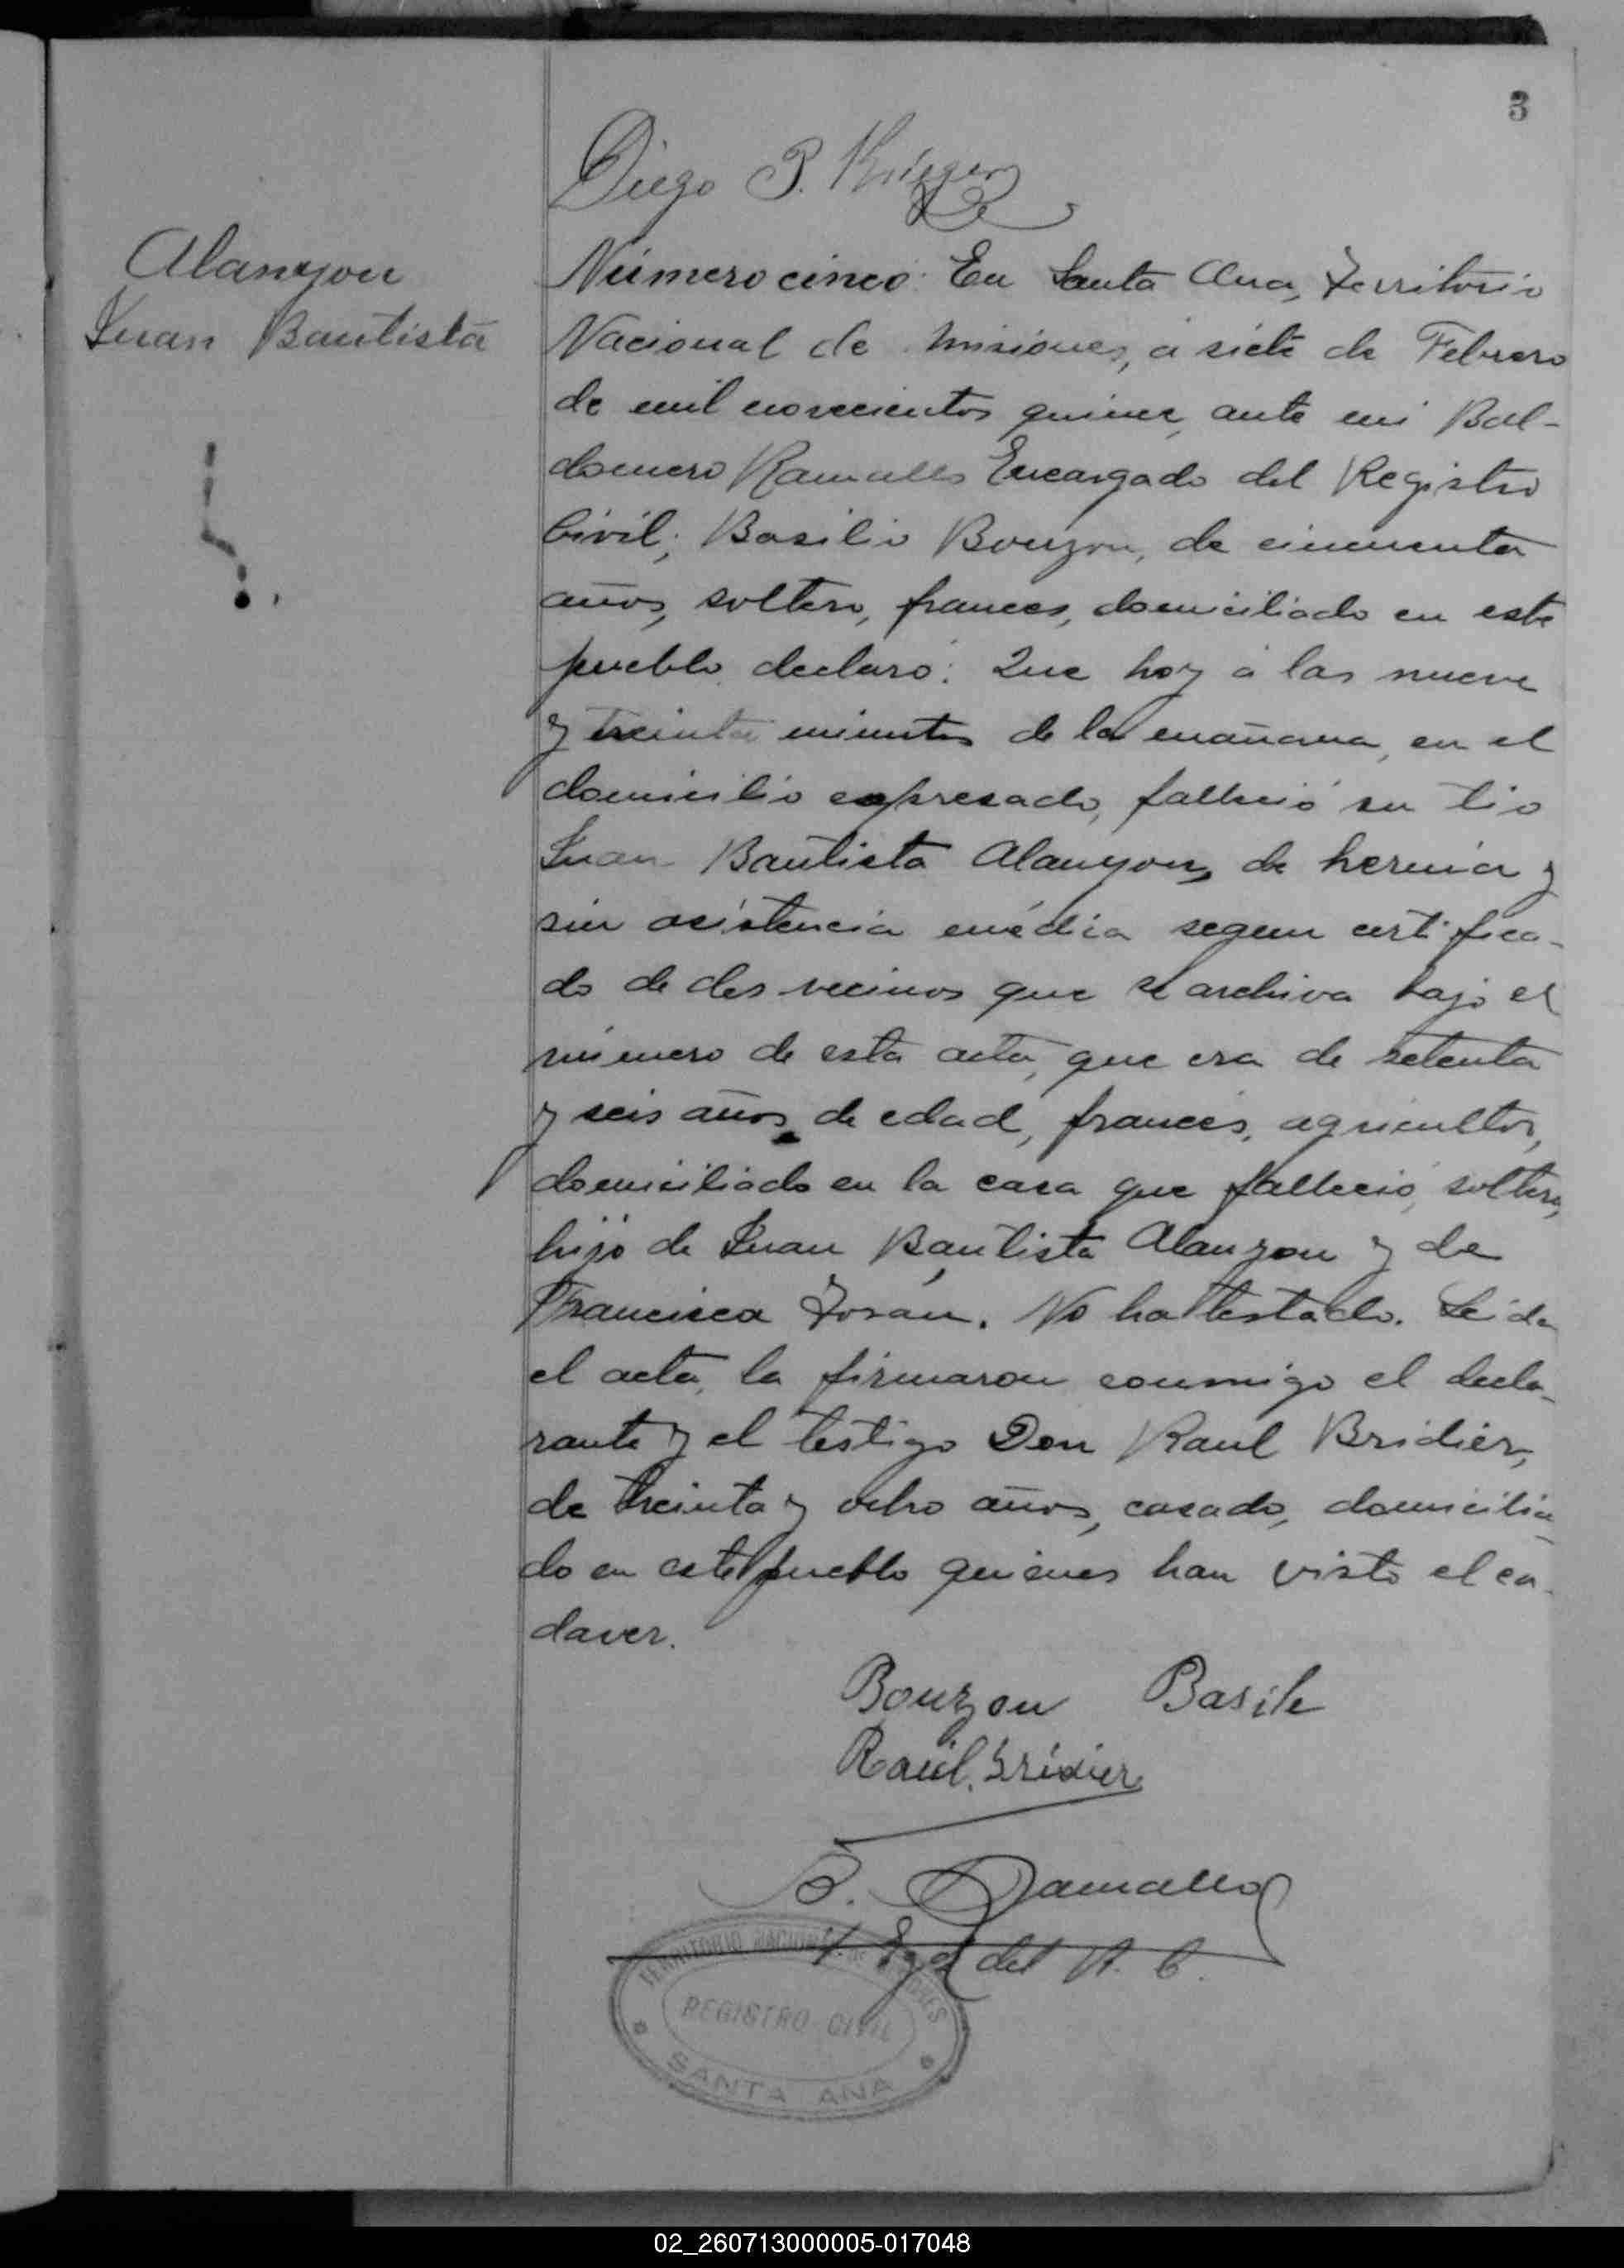 3
Diego P. Krieger
Alanzon
Juan Bautista
Número cinco: En Santa Ana, Territorio
Nacional de Misiones, á siete de Febrero
de mil novecientos quince, ante mi Bal-
domero Ramallo Encargado del Registro
Civil; Basilio Bouzon, de cincuenta
años, soltero, frances, domiciliado en este
pueblo declaró: Que hoy á las nueve
y treinta minutos de la mañana, en el
domicilio expresado, falleció su tio
Juan Bautista Alanzon, de hernia y
sin asistencia médica segun certifica-
do de dos vecinos que se archiva bajo el
número de esta acta, que era de setenta
y seis años de edad, francés, agricultor,
domiciliado en la casa que falleció, soltero,
hijo de Juan Bautista Alanzon y de
Francisca . No ha testado. Leida
el acta, la firmaron conmigo el decla-
rante y el testigo Don Raul Bridier,
de treinta y ocho años, casado, domicilia-
do en este pueblo quienes han visto el ca-
daver.
Bouzon Basile
Raúl Bridier
B. Ramallo
Egdo del R. C.
TERRITORIO NACIONAL DE MISIONES
REGISTRO CIVIL
SANTA ANA
02_260713000005-017048